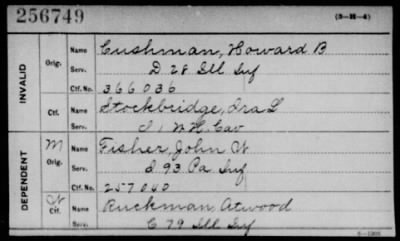 256749 (3-H-4)
INVALID
Orig. Name Cushman, Howard B
Serv. D 28 Ill Inf
Ctf. No. 366036
Ctf. Name Stockbridge, Ira L
Serv. N.H. Cav
DEPENDENT
M Orig. Name Fisher, John W
Serv. 93 Pa Inf
Ctf. No. 257040
W Ctf. Name Ruckman Atwood
Serv. C 79 Ill Inf